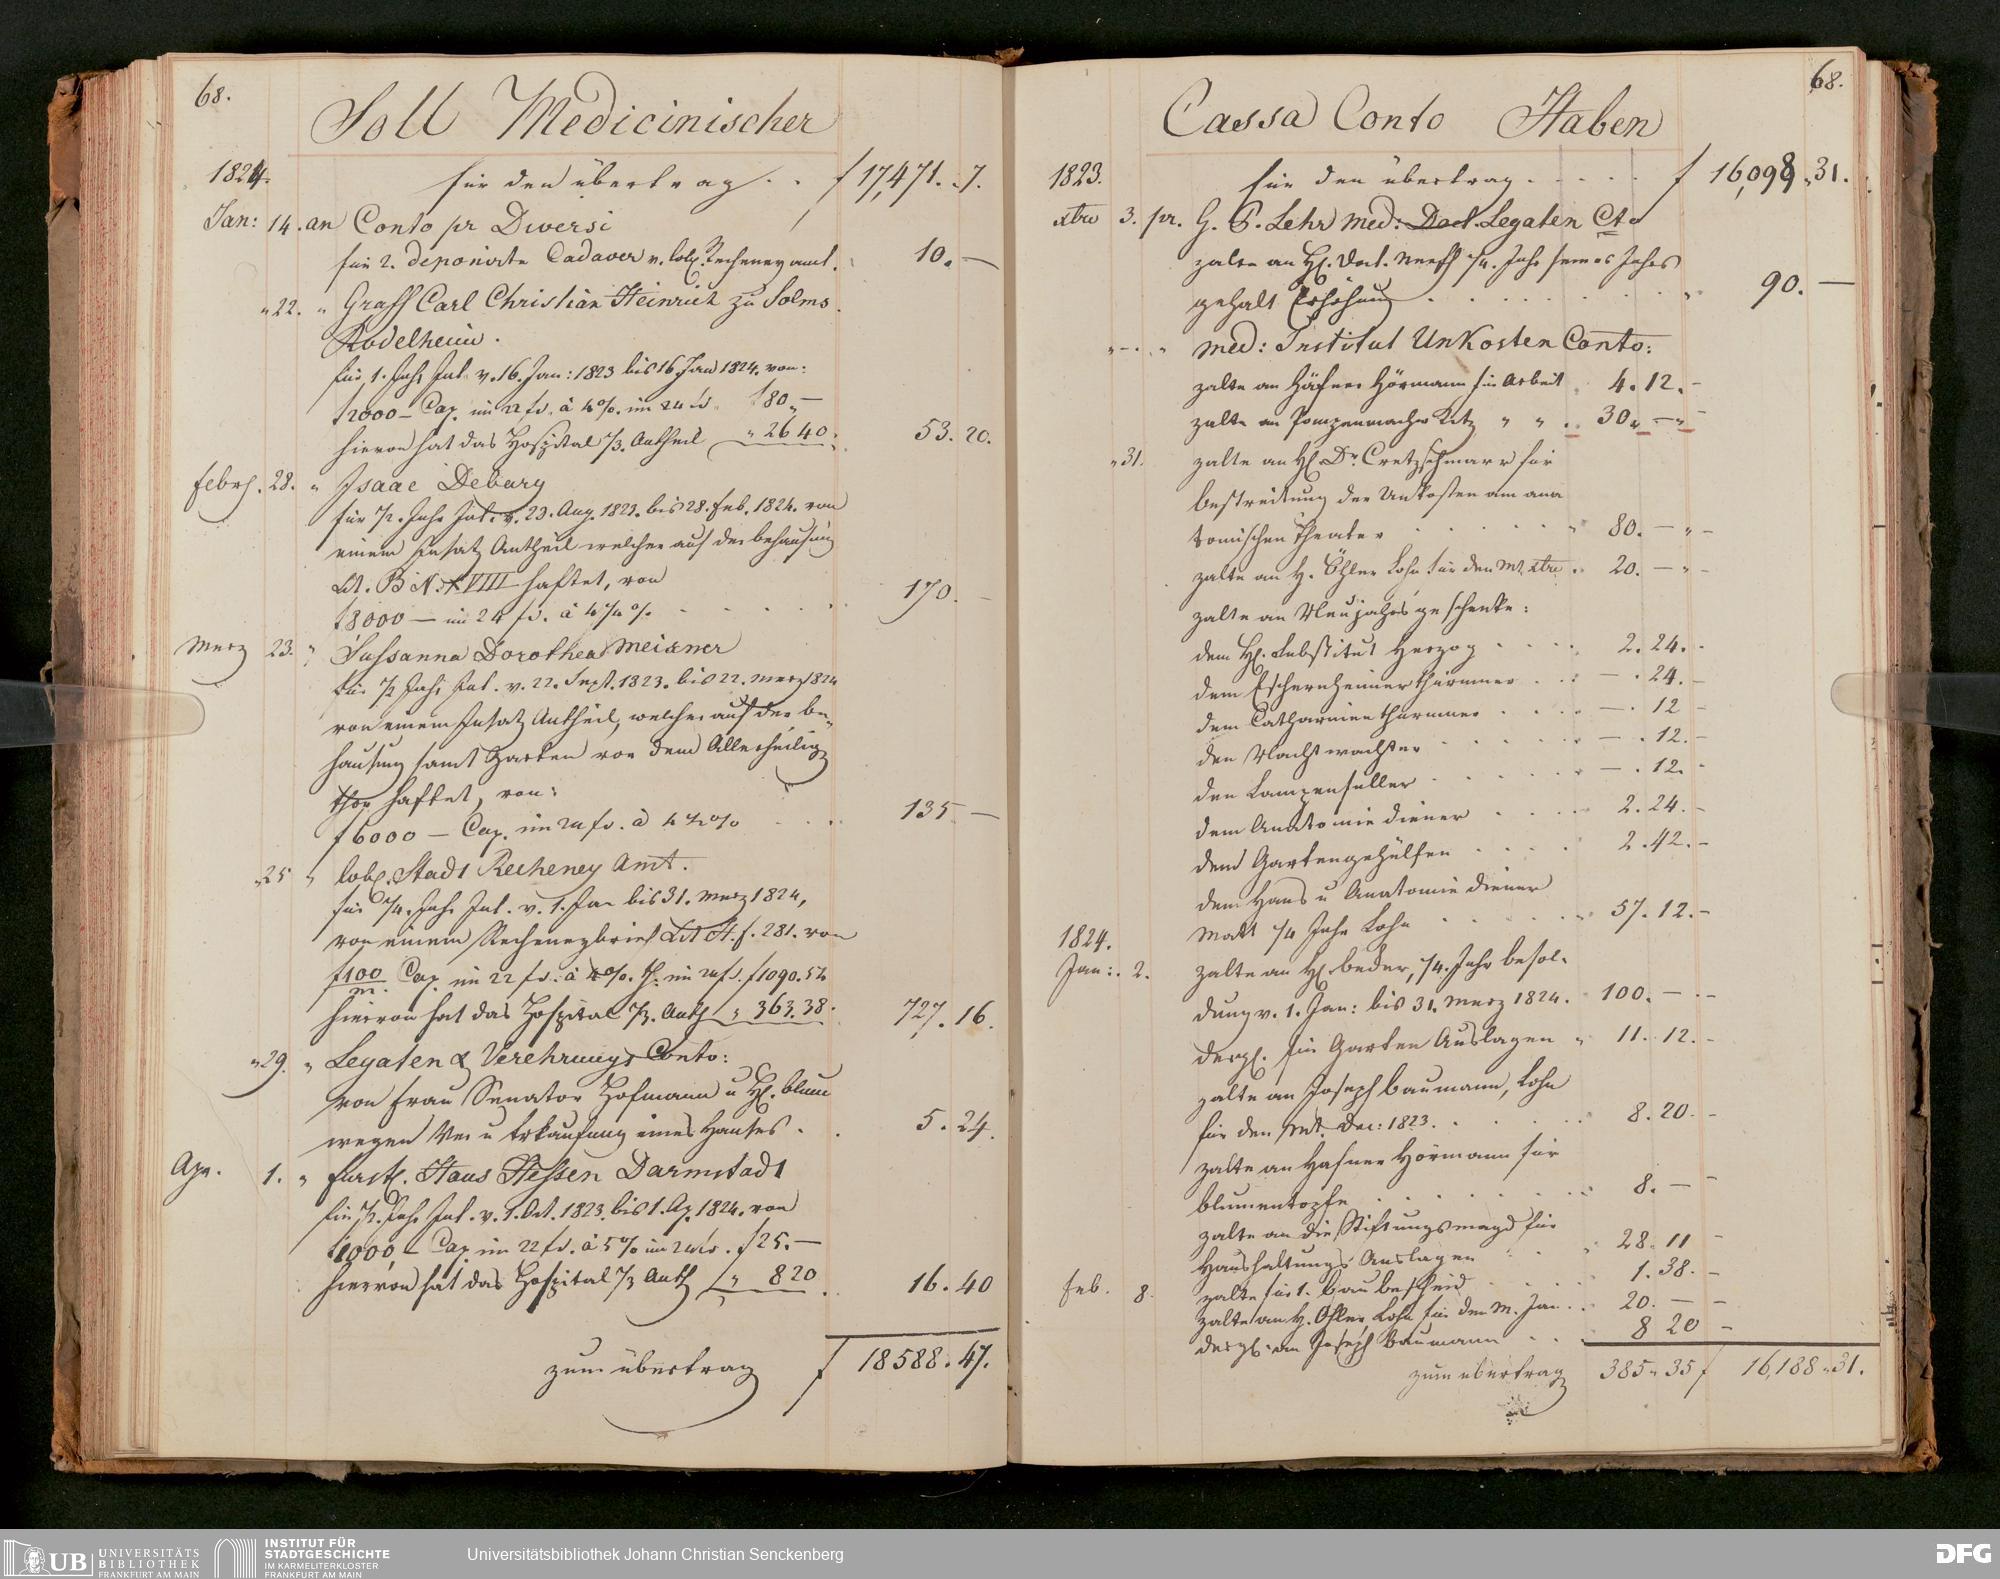 68.
Soll Medicinischer
1824.
für den übertrag . . f 17,471. 7.
Jan: 14. an Conto pr Diversi
für 2. deponirte Cadaver v. löbl. Recheney amt. 10. —
" 22. " Graff Carl Christian Heinrich zu Solms
Rödelheim.
für 1. Jahr Int. v. 16. Jan: 1823 bis 16. Jan 1824. von:
f 2000 — Cap. im 22 fs. à 4 %. im 24 fs f 80 „ —
hievon hat das Hospital 1/3. Antheil „ 26 40. 53. 20.
febr. 28. " Isaac Debary
für 1/2. Jahr Int. v. 29. Aug. 1823. bis 28. Feb. 1824. von
einem Insatz Antheil welcher auf der behausung
Lit. B N. XVIII haftet, von
f 8000 — im 24 fs. à 4 1/4 % 170. —
Merz 23. " Susanna Dorothea Meixner
für 1/2 Jahr Int. v. 22. Sept. 1823. bis 22. Merz 1824
von einem Insatz Antheil, welcher auf der be„
hausung samt Garten vor dem Allerheilig
thor haftet, von:
f 6000 — Cap. im 24 fs. à 4 1/2 % 135 —
" 25 " löbl. Stadt Recheney Amt.
für 1/4. Jahr Int. v. 1. Jan bis 31. Merz 1824,
von einem Recheneybrief Lit H. f. 281. von
f 100/m. Cap. im 22 fs. à 4 %. th. im 24 fs. f 1090. 54
hievon hat das Hospital 1/3. Anth „ 363. 38. 727. 16.
" 29. " Legaten & Verehrungs Conto:
von Frau Senator Hofmann u H. blum
wegen Ver u Erkaufung eines Hauses. 5. 24.
Apr. 1. " furstl. Haus Hessen Darmstadt
für 1/2. Jahr Int. v. 1. Oct. 1823. bis 1. Ap. 1824. von
f 1000, — Cap im 22 fs. à 5 % im 24 fs. f 25. —
hievon hat das Hospital 1/3 Anth „ 8 20 16. 40
zum übertrag f 18588. 47.
68.
Cassa Conto Haben
1823.
für den übertrag . . . . . f 16,098 „ 31.
xbre 3. pr. G. P. Lehr Med: Doct. Legaten Cto
zalte an H. Doct. Neeff 1/4. Jahr seines Jahrs
gehalt Erhöhung 90. —
" — . " Med: Institut Unkosten Conto:
zalte an Häfner Hörmann für Arbeit 4. 12. –
zalte an Pompenmacher Ritz " " 30 „ — „
" 31. zalte an H. Dr. Cretzschmarr für
bestreitung der Unkosten am ana
tomischen Theater 80. — „ –
zalte an H. Öhler Lohn für den Mt. xbre. 20. — „ –
zalte an Neujahrs geschenke:
dem H. Substitut Herzog 2. 24.
dem Eschernheimer thürmer — . 24.
dem Catharinen thürmer — . 12
den Nachtwachter — . 12.
den Lampenfuller — . 12.
dem Anatomie diener 2. 24. –
dem Gartengehülfen 2. 42. –
dem Haus u Anatomie diener
Matt 1/4 Jahr Lohn 57. 12. –
1824.
Jan: 2. zalte an H. beder, 1/4. Jahr besol-
dung v. 1. Jan: bis 31. Merz 1824. 100. — . –
desgl. für Garten Auslagen „ 11. 12. –
zalte an Joseph baumann, Lohn
für den Mt. Dec: 1823. 8. 20. –
zalte an Hafner Hörmann für
blumentopfe 8. — –
zalte an die Stiftungsmagd für
Haushaltungs Auslagen 28. 11 –
Feb. 8. zalte für 1. baubescheid 1. 38. –
zalte an H. Öhler, Lohn für den M. Jan. 20. — –
desgl. an Joseph Baumann 8 20 –
zum übertrag 385 „ 35 f 16,188 „ 31.
UB UNIVERSITÄTS
BIBLIOTHEK
FRANKFURT AM MAIN
INSTITUT FÜR
STADTGESCHICHTE
IM KARMELITERKLOSTER
FRANKFURT AM MAIN
Universitätsbibliothek Johann Christian Senckenberg
DFG